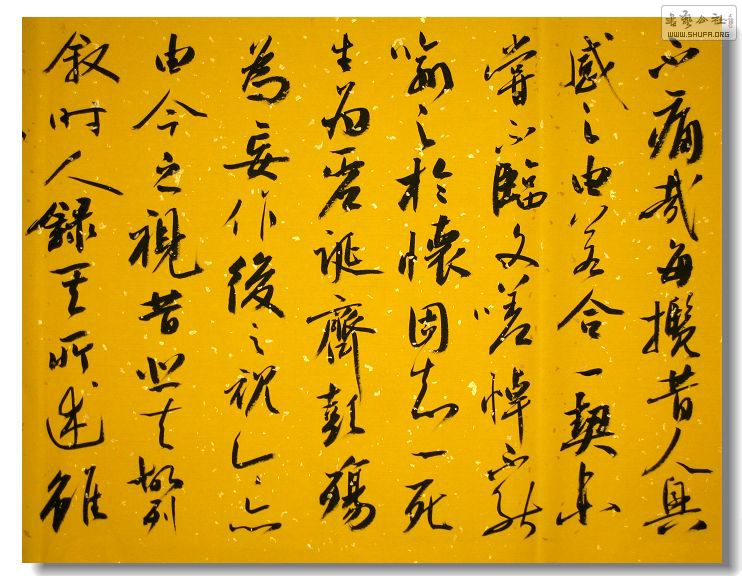 书艺公社
WWW.SHUFA.ORG
不痛哉每攬昔人興
感之由若合一契未
嘗不臨文嗟悼不能
喻之於懷固知一死
生為虛誕齊彭殤
為妄作後之視今亦
由今之視昔悲夫故列
叙時人錄其所述雖